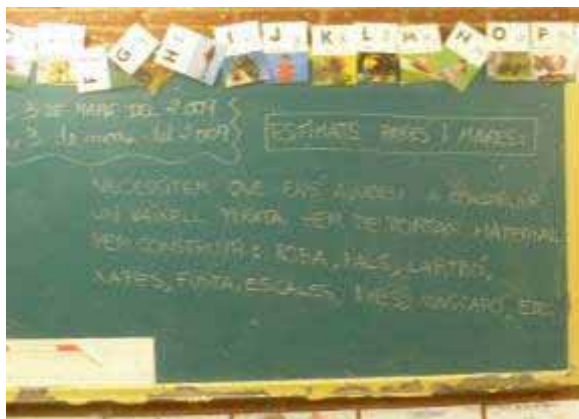 F G H I J K L M N O P
3 DE MARÇ DEL 2009
3 de març del 2009
ESTIMATS PARES I MARES:
NECESSITEM QUE ENS AJUDEU A CONSTRUIR
UN VAIXELL PIRATA. HEM DE PORTAR MATERIAL
PER CONSTRUIR: ROBA, PALS, CARTRÓ,
XAPES, FUSTA, ESCALES, ETC.